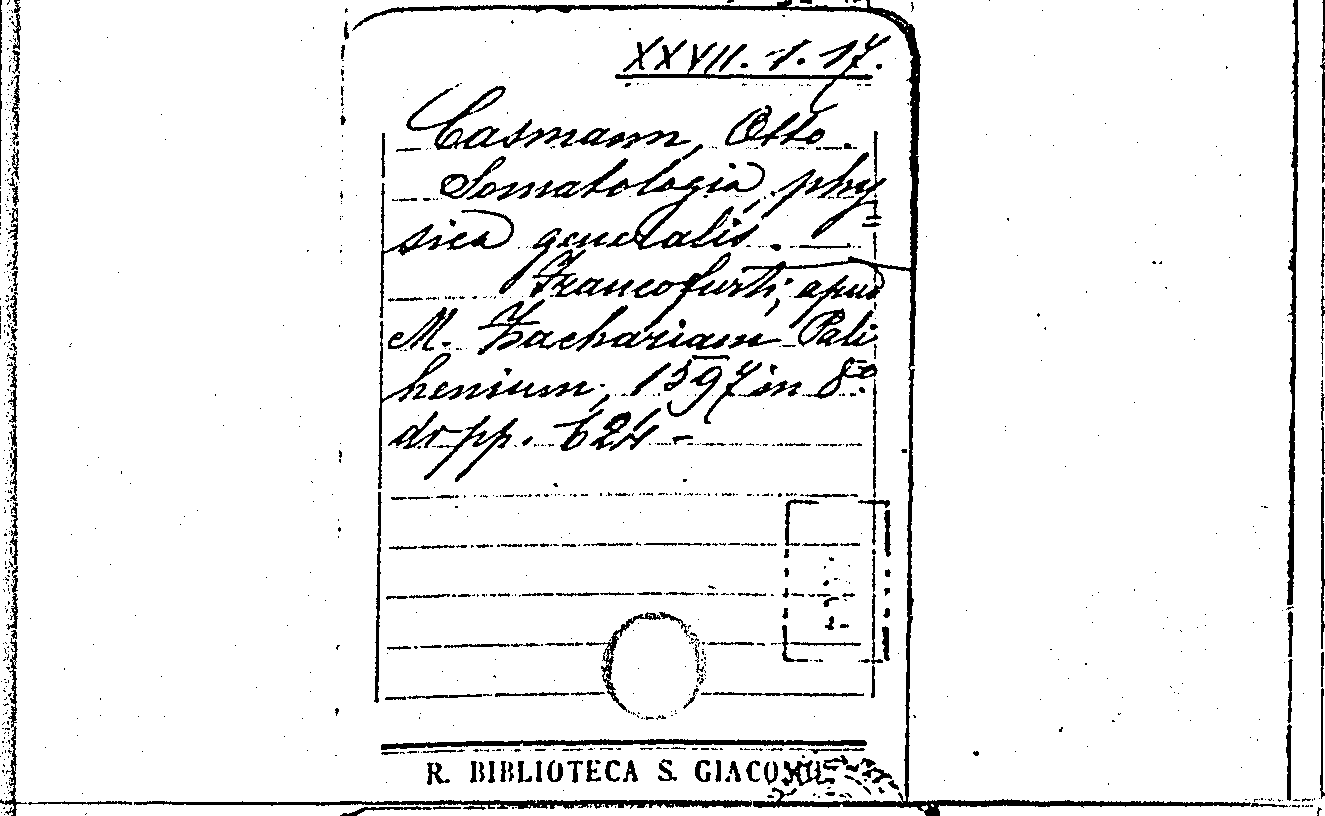 XXVII. 1. 17.
Casmann, Otto.
Somatologia, phy=
sica generalis.
Francofurti, apud
M. Zachariam Pal
henium, 1597 in 8º.
di pp. 624 -
R. BIBLIOTECA S. GIACOMO